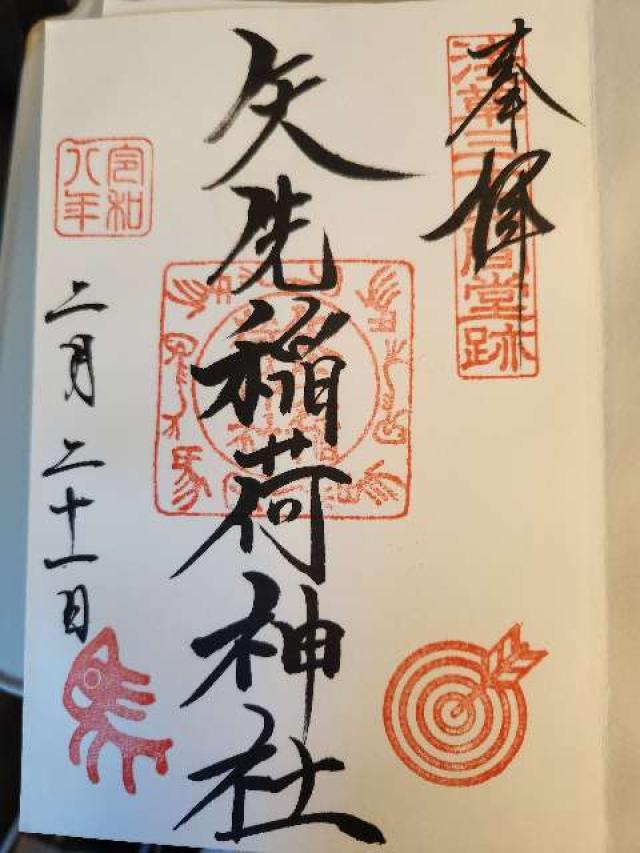 奉拝
浅草三十三間堂跡
矢先稲荷神社
令和八年
二月二十一日